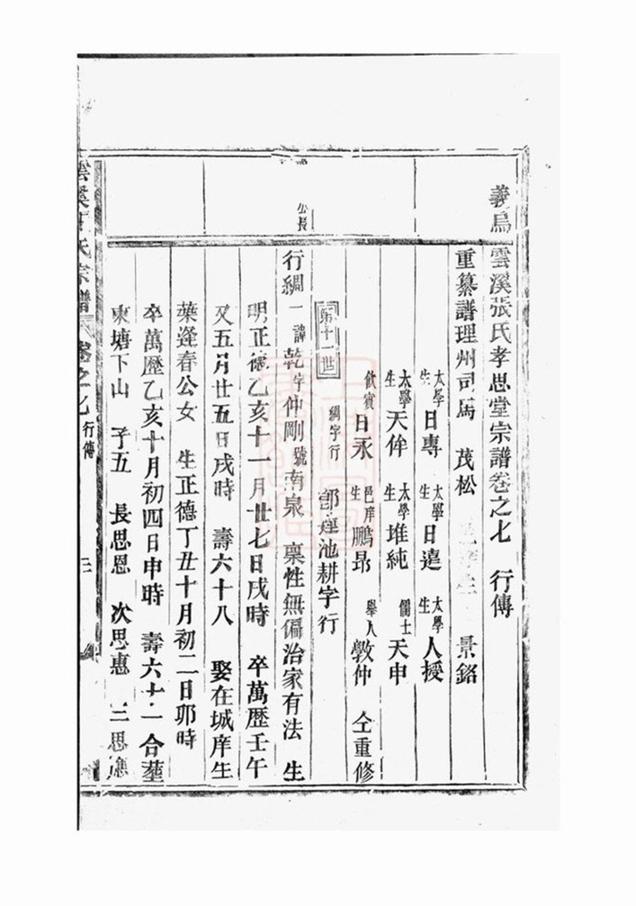 義烏雲溪張氏孝思堂宗譜卷之七 行傳
重纂譜理州司馬 茂松 景銘
太學生日專 太學生日逵 太學生人授
太學生天侔 太學生堆純 儒士天申
飲賓日永 邑庠生鵬昂 舉人敦仲 仝重修
第十一世 綢字行 即蓮池耕字行
公長
行綢一 諱乾字仲剛號南泉 稟性無偏治家有法 生
明正德乙亥十一月廿七日戌時 卒萬歷壬午
又五月廿五日戌時 壽六十八 娶在城庠生
葉逢春公女 生正德丁丑十月初二日卯時
卒萬歷乙亥十月初四日申時 壽六十一 合塟
東塘下山 子五 長思恩 次思惠 三思
雲溪張氏宗譜 卷之七 行傳